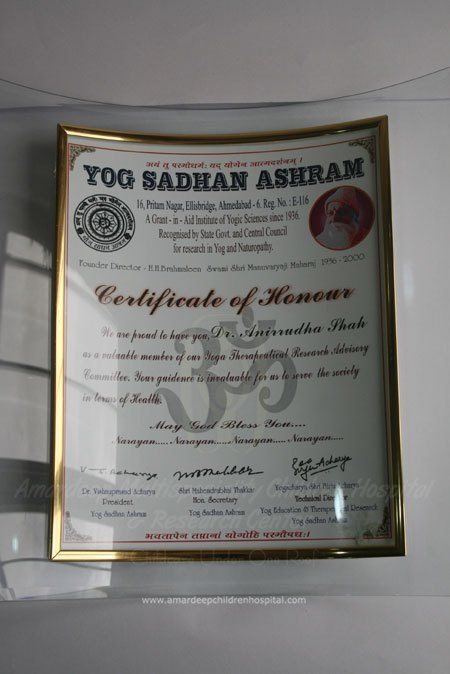 अयं तु परमोधर्मः यद् योगेन आत्मदर्शनम् ।
YOG SADHAN ASHRAM
16, Pritam Nagar, Ellisbridge, Ahmedabad - 6. Reg. No. : E-116
A Grant - in - Aid Institute of Yogic Sciences since 1936.
Recognised by State Govt. and Central Council
for research in Yog and Naturopathy.
Founder Director - H.H.Brahmleen Swami Shri Manuvaryaji Maharaj 1936 - 2000.
Certificate of Honour
We are proud to have you, Dr. Anirrudha Shah
as a valuable member of our Yoga Therapeutical Research Advisory
Committee. Your guidence is invaluable for us to serve the society
in terms of Health.
ॐ
May God Bless You....
Narayan..... Narayan.....Narayan..... Narayan.....
Dr. Vishnuprasad Acharya
President
Yog Sadhan Ashram
Shri Mahendrabhai Thakkar
Hon. Secretary
Yog Sadhan Ashram
Yogacharya Shri Acharya
Technical Director
Yog Education & Therapeutical Research
Yog Sadhan Ashram
भवतापेन तप्तानां योगोहि परमौषधः।
www.amardeepchildrenhospital.com